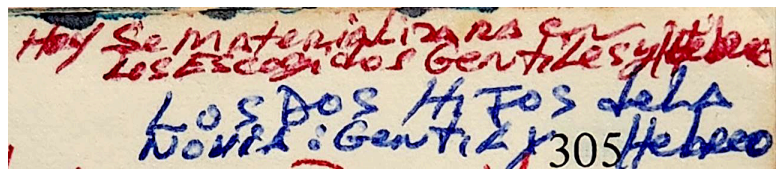 Hoy Se materializara en
Los Escogidos Gentiles y Hebreo
Los Dos Hijos de La
Novia: Gentil y Hebreo
305